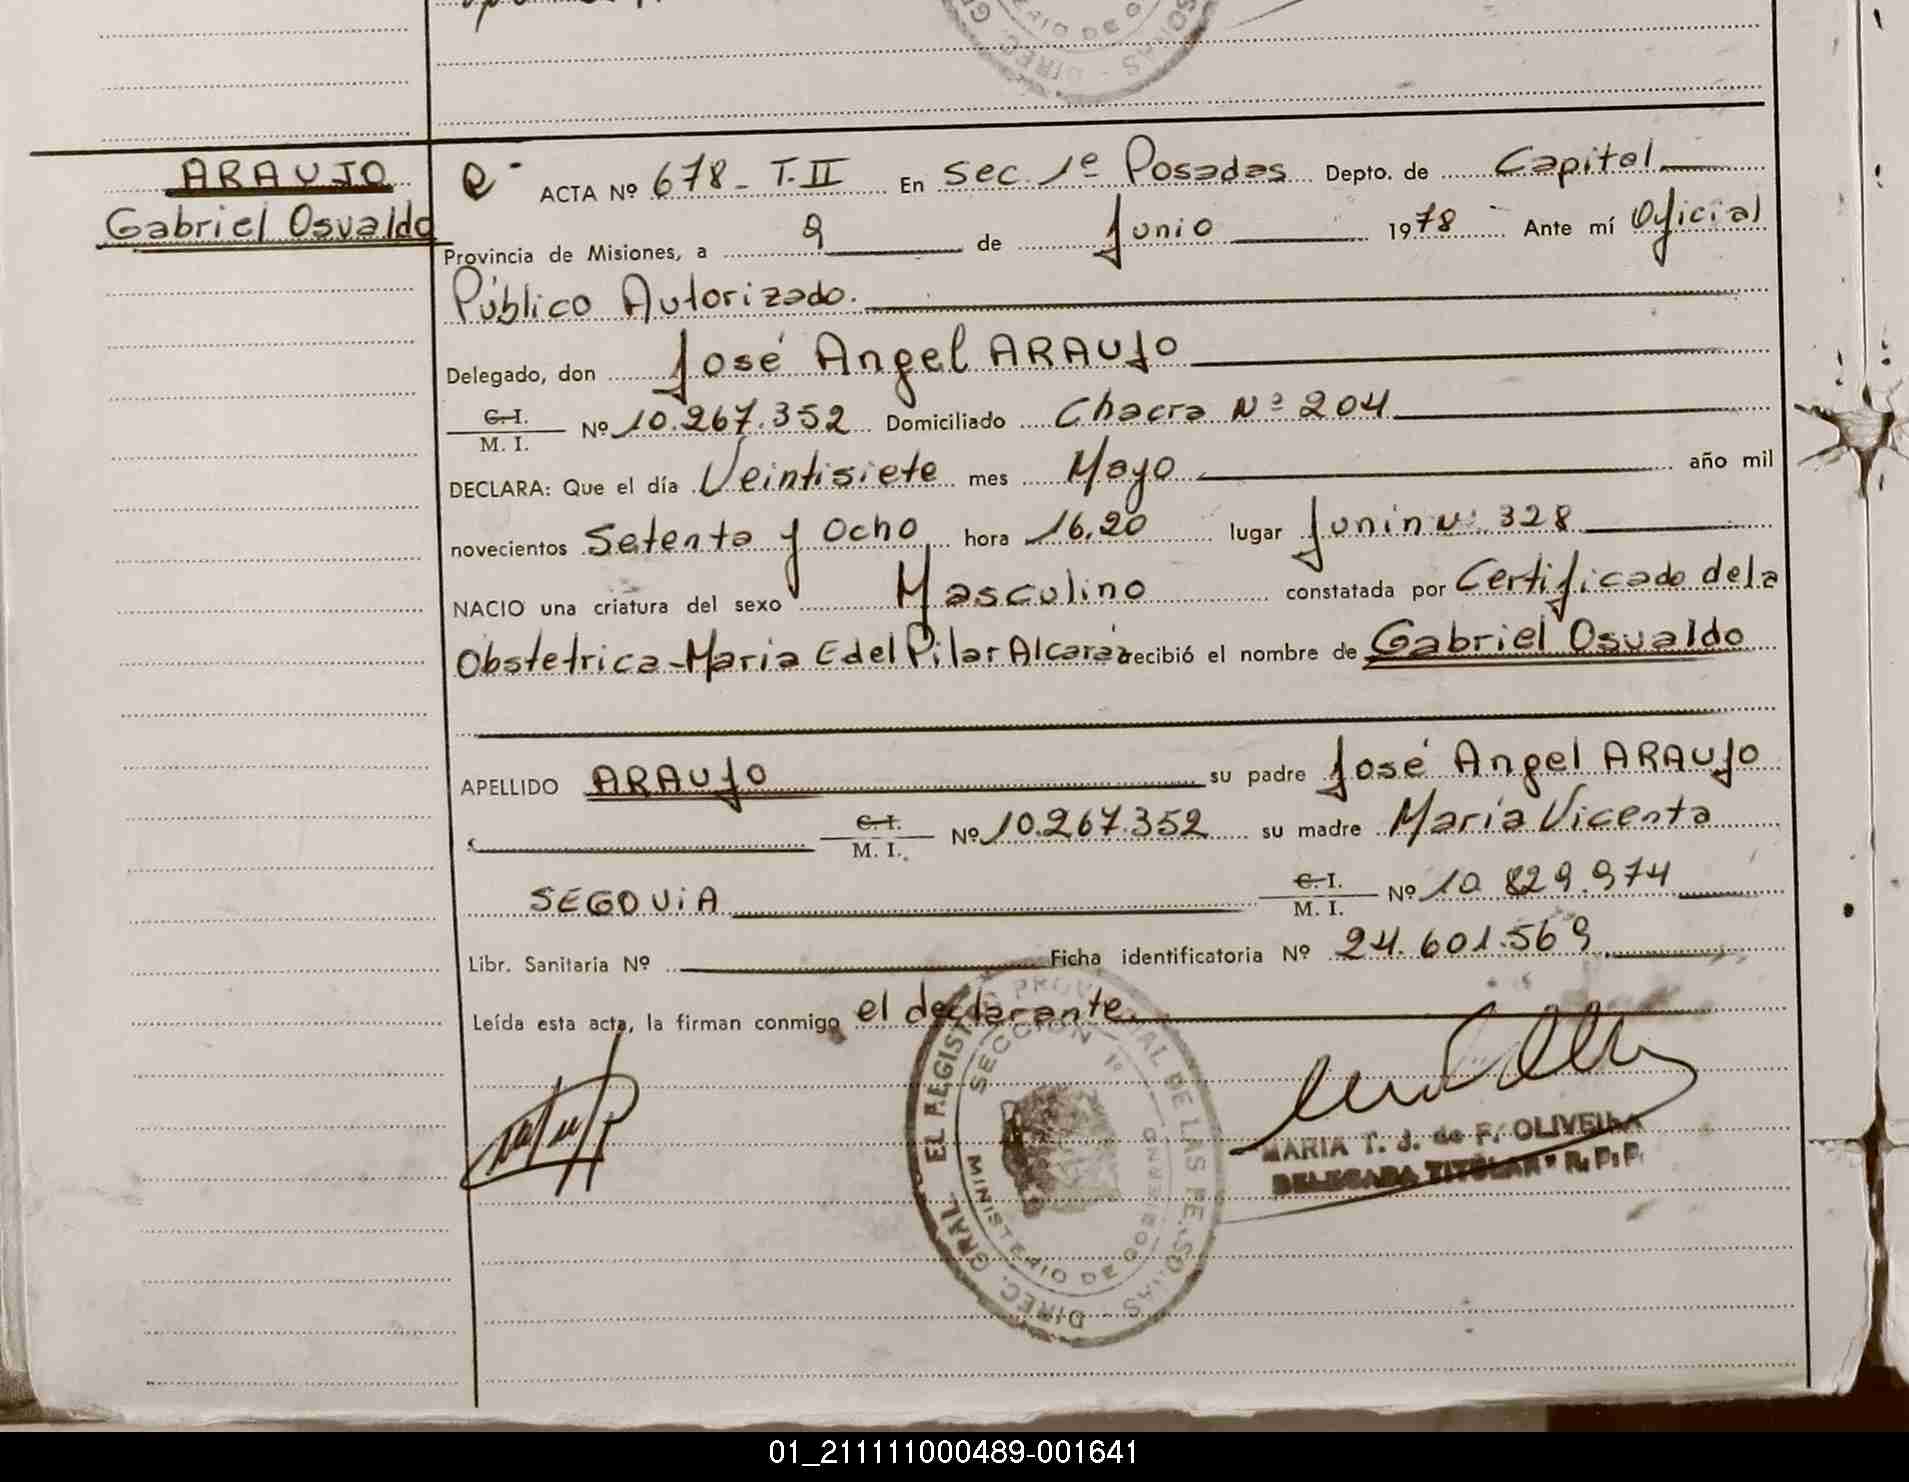 ARAUJO
Gabriel Osvaldo
ACTA Nº 678 - T. II En Sec. 1ª Posadas Depto. de Capital
Provincia de Misiones, a 9 de Junio 1978 Ante mí Oficial
Público Autorizado.
Delegado, don José Angel ARAUJO
C. I. M. I. Nº 10.267.352 Domiciliado Chacra Nº 204
DECLARA: Que el día Veintisiete mes Mayo año mil
novecientos Setenta y Ocho hora 16,20 lugar Junín Nº 328
NACIO una criatura del sexo Masculino constatada por Certificado de la
Obstetrica - Maria E del Pilar Alcaráz recibió el nombre de Gabriel Osvaldo
APELLIDO ARAUJO su padre José Angel ARAUJO
C. I. M. I. Nº 10.267.352 su madre María Vicenta
SEGOVIA C. I. M. I. Nº 10.829.974
Libr. Sanitaria Nº Ficha identificatoria Nº 24.601.569
Leída esta acta, la firman conmigo el declarante.
SECCION 1º
MINISTERIO DE GOBIERNO
MARIA T. J. de F. OLIVEIRA
DELEGADA TITULAR R. P. P.
01_211111000489-001641